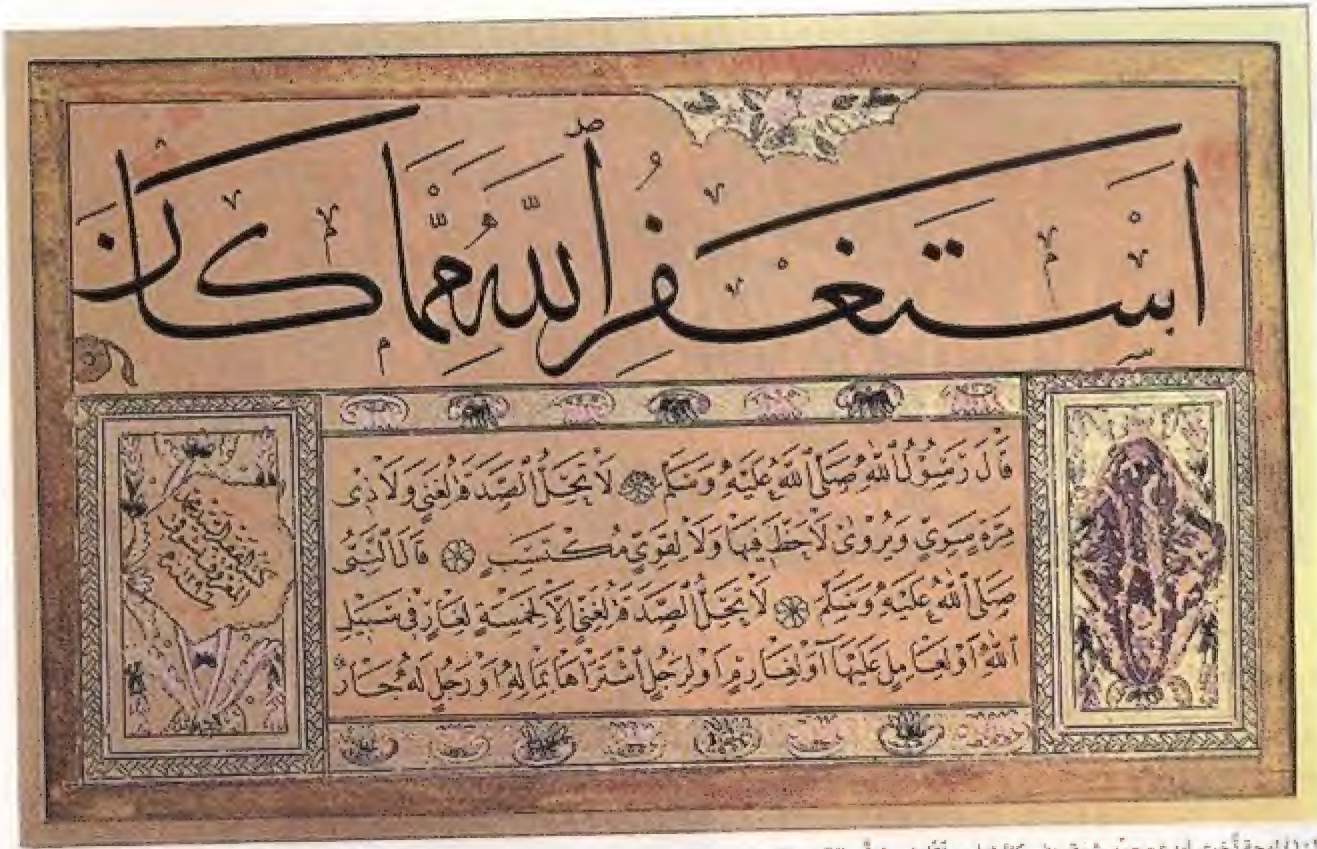 اَسْتَغْفِرُ ٱللّٰهَ مِمَّا كَانَ
قَالَ رَسُوْلُ ٱللّٰهِ صَلَّى ٱللّٰهُ عَلَيْهِ وَسَلَّمَ لَا تَحِلُّ ٱلصَّدَقَةُ لِغَنِيٍّ وَلَا لِذِى
مِرَّةٍ سَوِيٍّ وَيُرْوٰى لَا حَظَّ فِيْهَا وَلَا لِقَوِيٍّ مُكْتَسِبٍ قَالَ النَّبِىُّ
صَلَّى ٱللّٰهُ عَلَيْهِ وَسَلَّمَ لَا تَحِلُّ ٱلصَّدَقَةُ لِغَنِيٍّ اِلَّا لِخَمْسَةٍ لِغَازٍ فِى سَبِيْلِ
ٱللّٰهِ اَوْ لِعَامِلٍ عَلَيْهَا اَوْ لِغَارِمٍ اَوْ لِرَجُلٍ اشْتَرَاهَا بِمَالِهِ اَوْ رَجُلٍ لَهُ جَارٌ